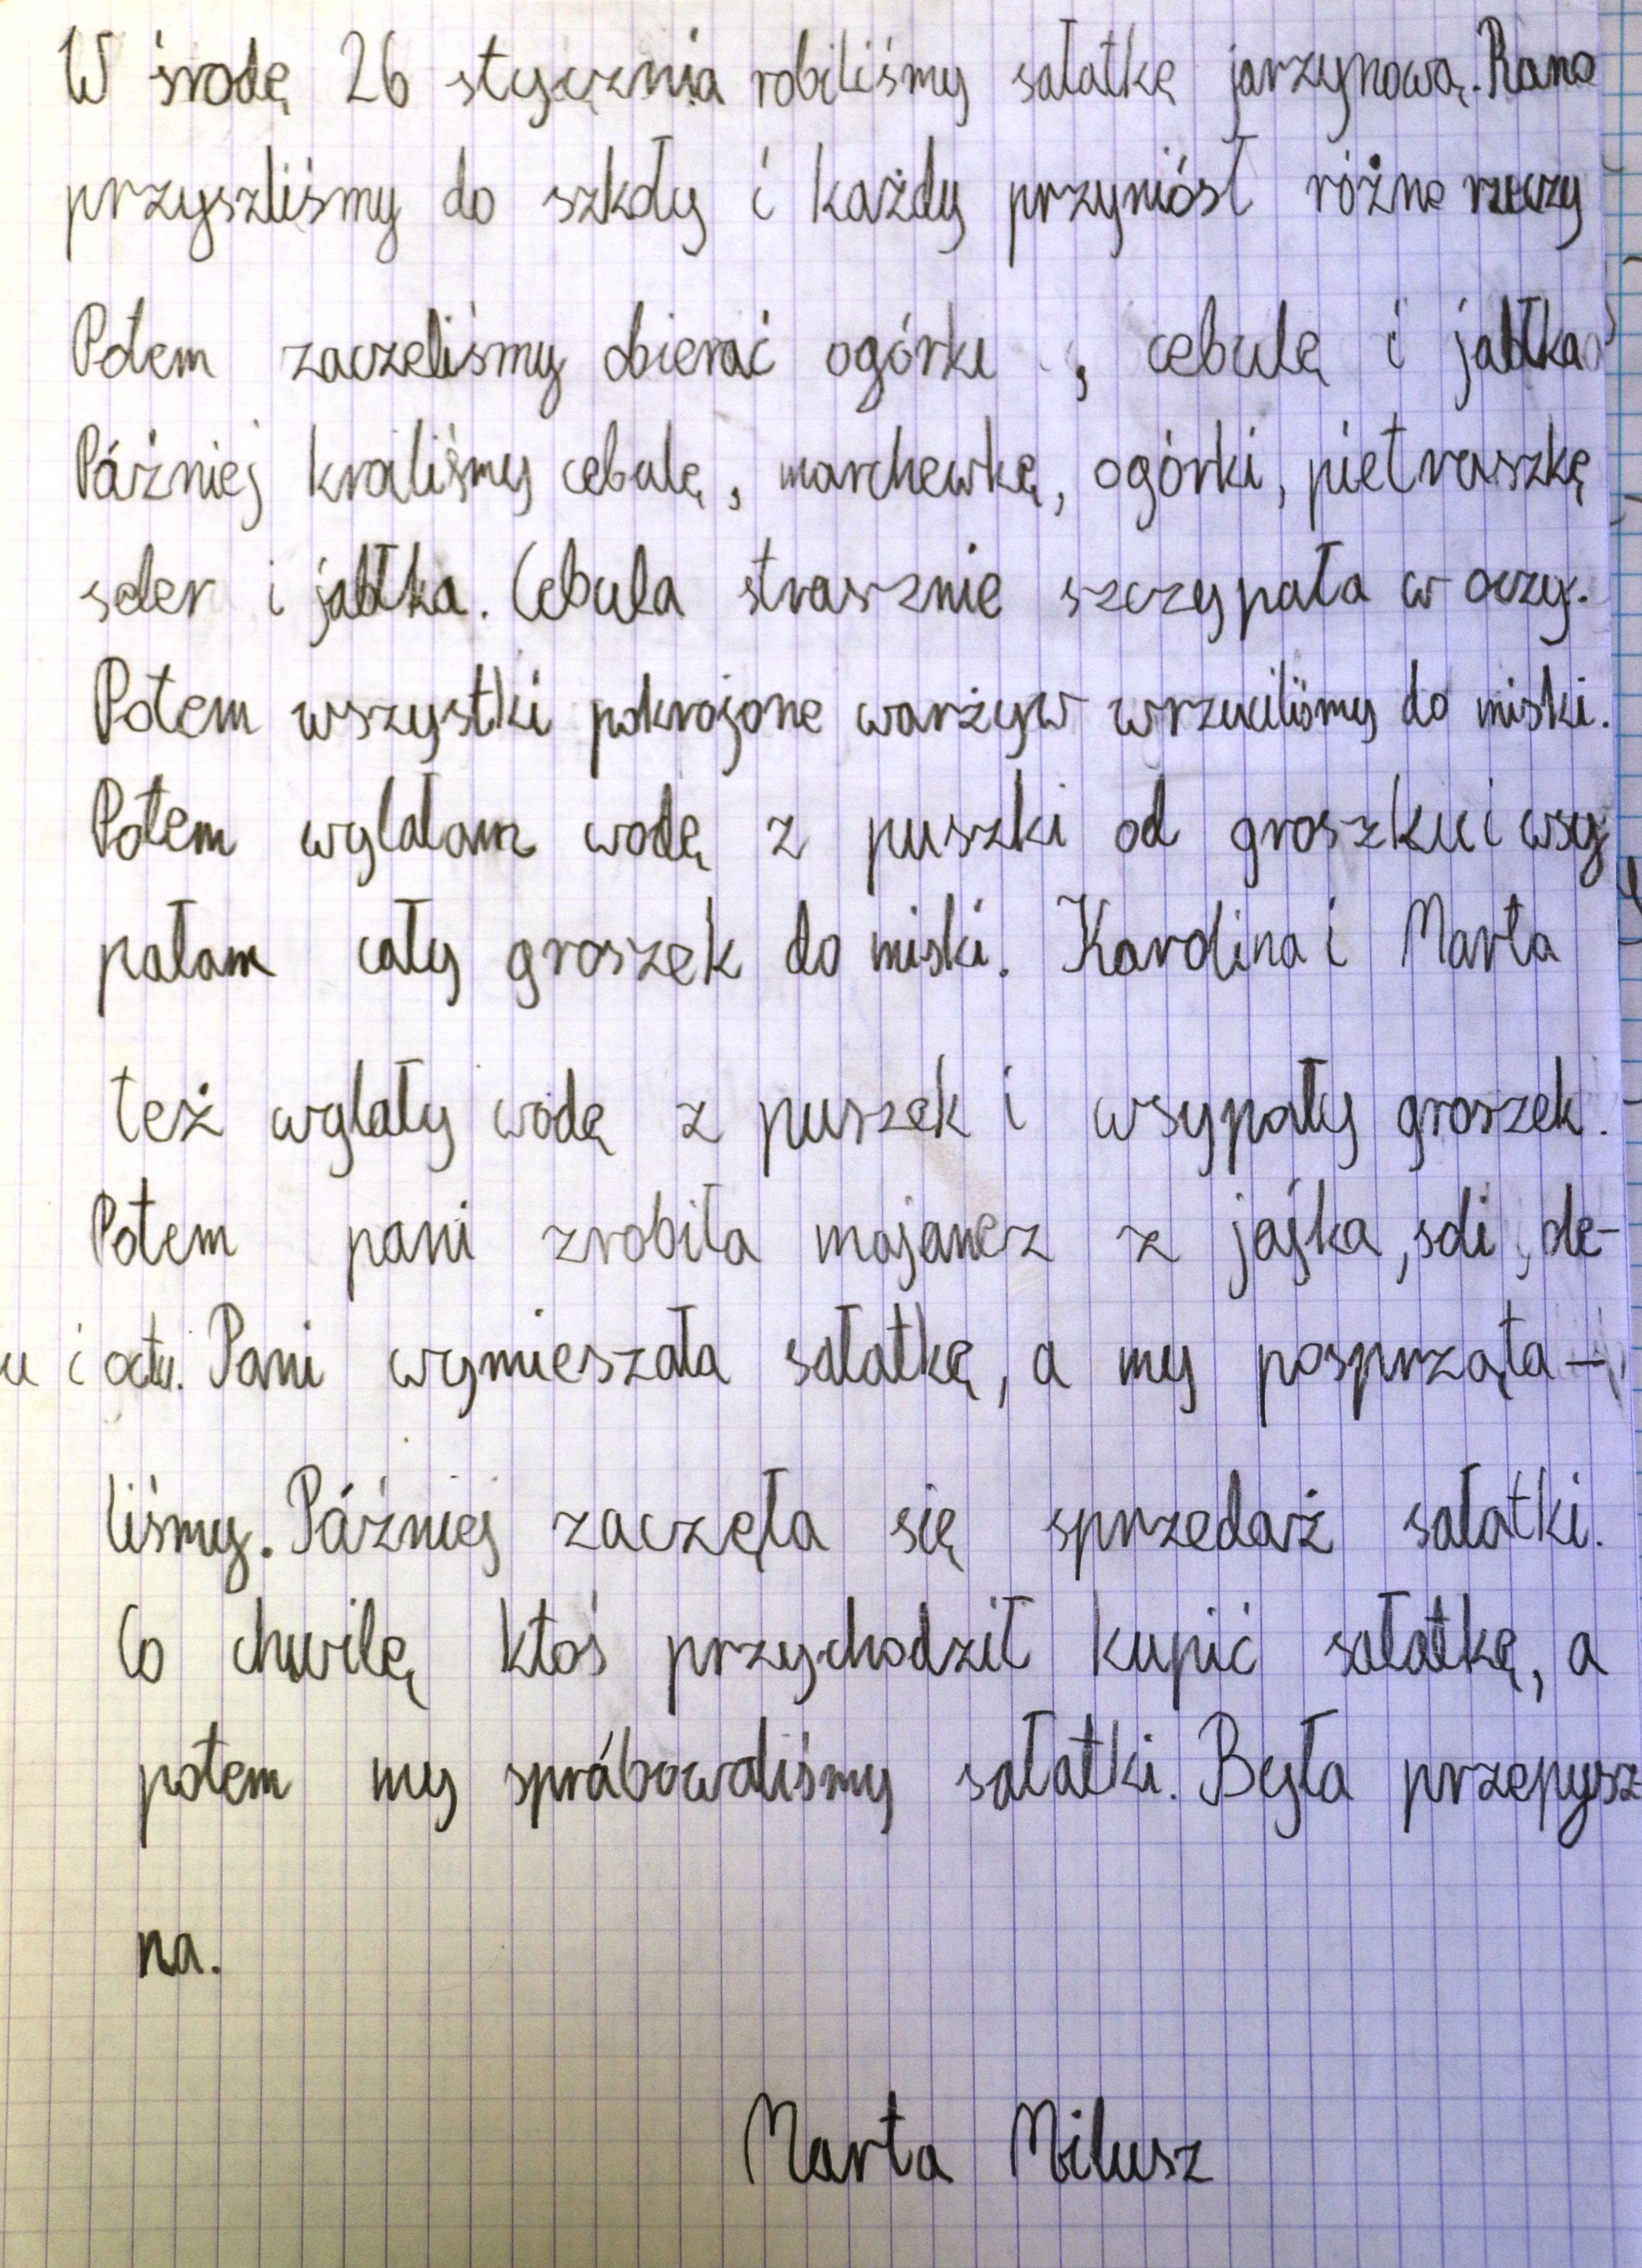 W środę 26 stycznia robiliśmy sałatkę jarzynową. Rano
przyszliśmy do szkoły i każdy przyniósł różne rzeczy
Potem zaczeliśmy obierać ogórki , cebulę i jabłka
Później kroiliśmy cebulę, marchewkę, ogórki, pietruszkę
seler i jabłka. Cebula strasznie szczypała w oczy.
Potem wszystki pokrojone warzyw wrzuciliśmy do miski.
Potem wylałam wodę z puszki od groszku i wsy
pałam cały groszek do miski. Karolina i Marta
też wylały wodę z puszek i wsypały groszek.
Potem pani zrobiła majonez z jajka, soli, ole-
u i octu. Pani wymieszała sałatkę, a my posprząta-
liśmy. Później zaczęła się sprzedaż sałatki.
Co chwilę ktoś przychodził kupić sałatkę, a
potem my spróbowaliśmy sałatki. Była przepysz
na.
Marta Milusz